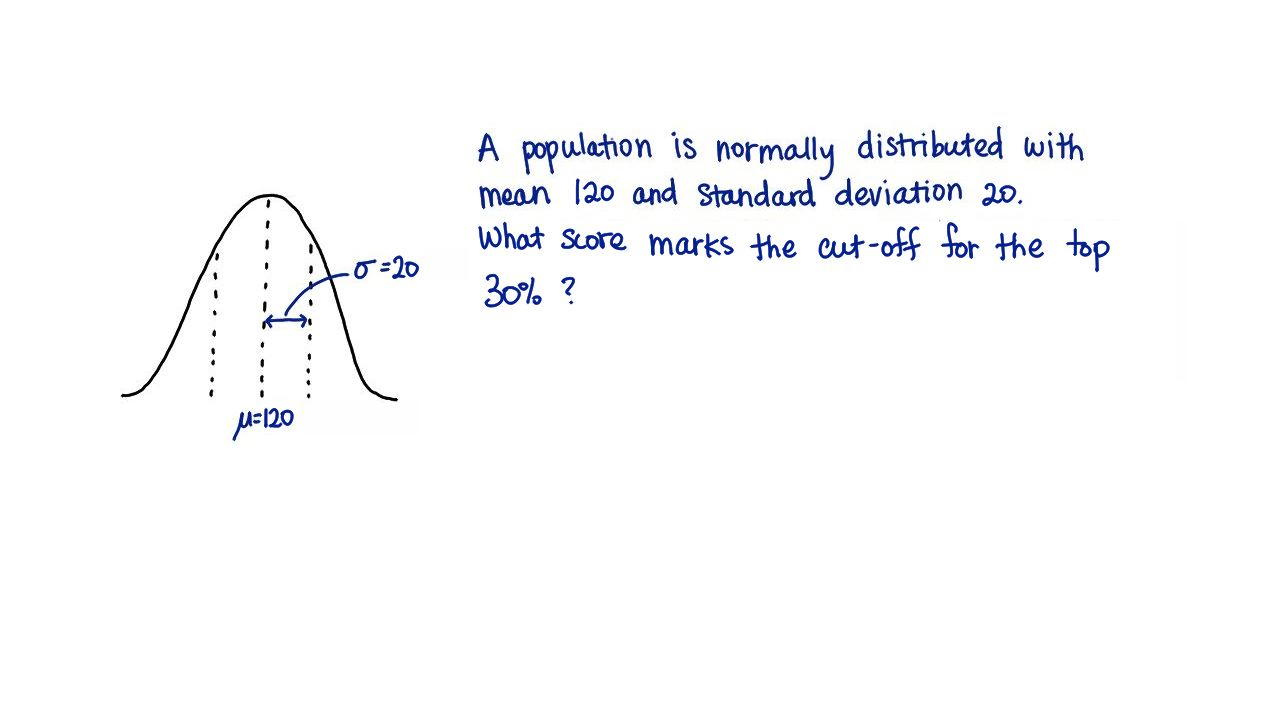 A population is normally distributed with
mean 120 and standard deviation 20.
What score marks the cut-off for the top
30% ?
σ=20
μ=120